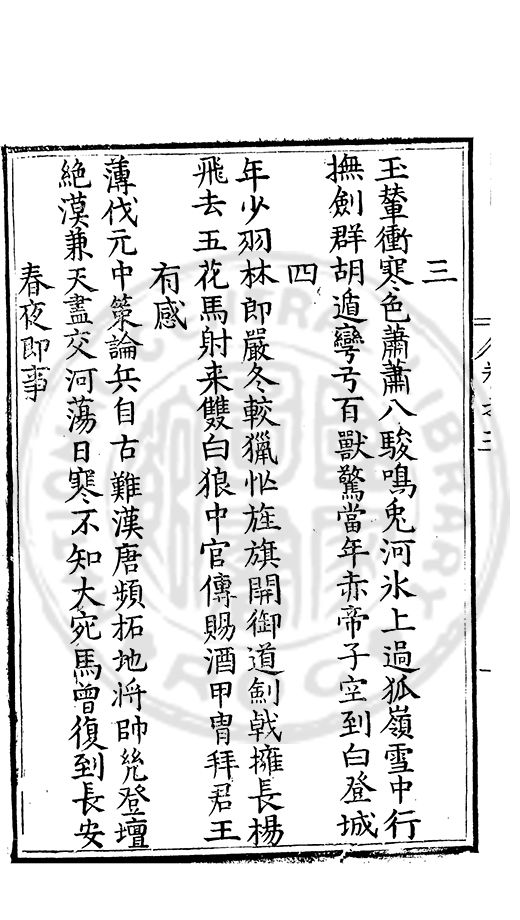 三
玉輦衝寒色蕭蕭八駿鳴兎河氷上過狐嶺雪中行
撫劍群胡遁彎弓百獸驚當年赤帝子空到白登城
四
年少羽林郎嚴冬較獵忙旌旗開御道劍戟擁長楊
飛去五花馬射来雙白狼中官傳賜酒甲冑拜君王
有感
薄伐元中策論兵自古難漢唐頻拓地将帥幾登壇
絶漠兼天盡交河蕩日寒不知大宛馬曾復到長安
春夜即事